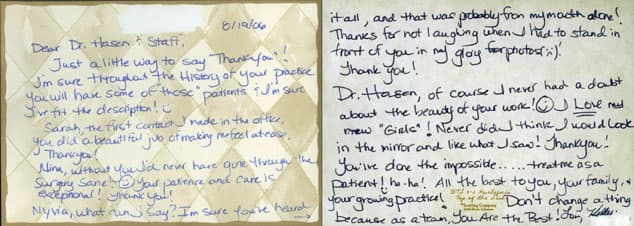 8/19/06
Dear Dr. Hasen & Staff,
Just a little way to say "Thankyou"!
I'm sure throughout the History of your practice
you will have some of those "patients" & I'm sure
I've fit the description!
Sarah, the first contact I made in the office.
You did a beautiful job of making me feel at ease.
Thankyou!
Nina, without you I'd never have gone through the
Surgery Sane! Your patience and care is
exceptional! Thankyou!
Nyvia, what can I say? I'm sure you've heard
it all, and that was probably from my mouth alone!
Thanks for not laughing when I had to stand in
front of you in my glory for photos!
Thank you!
Dr. Hasen, of course I never had a doubt
about the beauty of your work! I Love my
new "Girls"! Never did I think I would look
in the mirror and like what I saw! Thankyou!
You've done the impossible..... treat me as a
patient! ha-ha! All the best to you, your family, &
your growing practice! Don't change a thing
because as a team, You Are the Best!